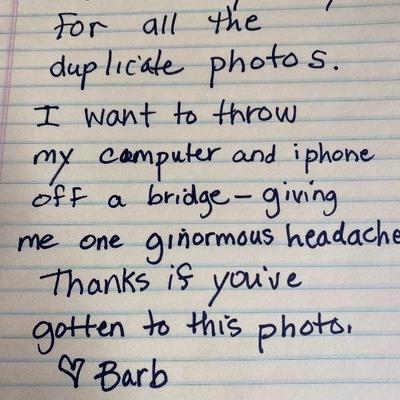 For all the
duplicate photos.
I want to throw
my computer and iphone
off a bridge — giving
me one ginormous headache
Thanks if you've
gotten to this photo.
♡ Barb